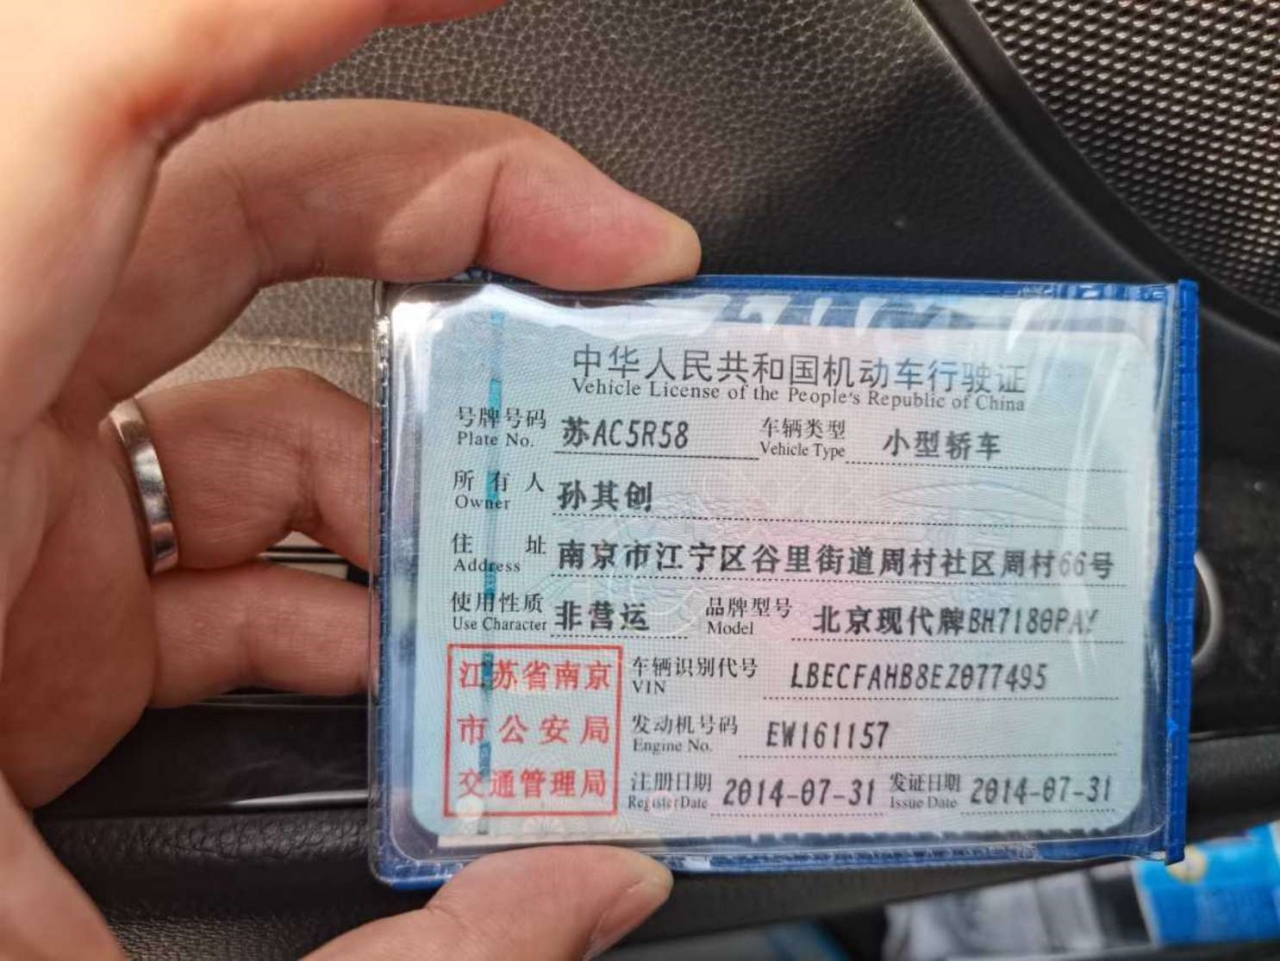 中华人民共和国机动车行驶证
Vehicle License of the People's Republic of China
号牌号码 苏AC5R58 车辆类型 小型轿车
Plate No. Vehicle Type
所有人 孙其创
Owner
住址 南京市江宁区谷里街道周村社区周村66号
Address
使用性质 非营运 品牌型号 北京现代牌BH7180PAY
Use Character Model
江苏省南京
市公安局
交通管理局
车辆识别代号 LBECFAHB8EZ077495
VIN
发动机号码 EW161157
Engine No.
注册日期 2014-07-31 发证日期 2014-07-31
Register Date Issue Date